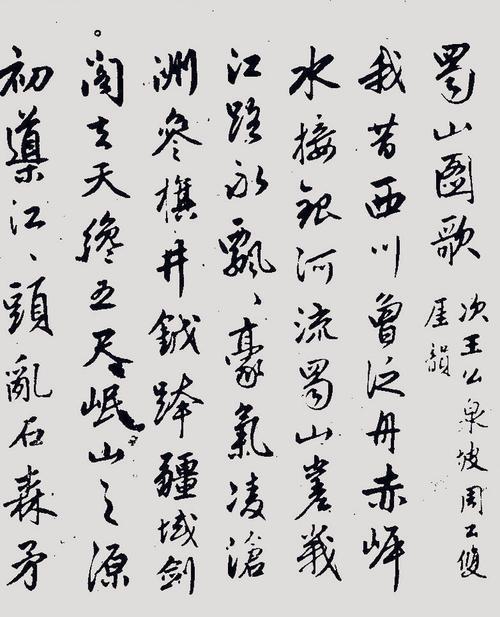 蜀山圖歌
次王公泉坡周工
厓韻
我昔西川曾泛舟赤岬
水接銀河流蜀山嵳峩
江路永飄、豪氣凌滄
洲參旗井鉞跨疆域劍
閣去天纔五尺岷山之源
初導江、頭亂石森矛